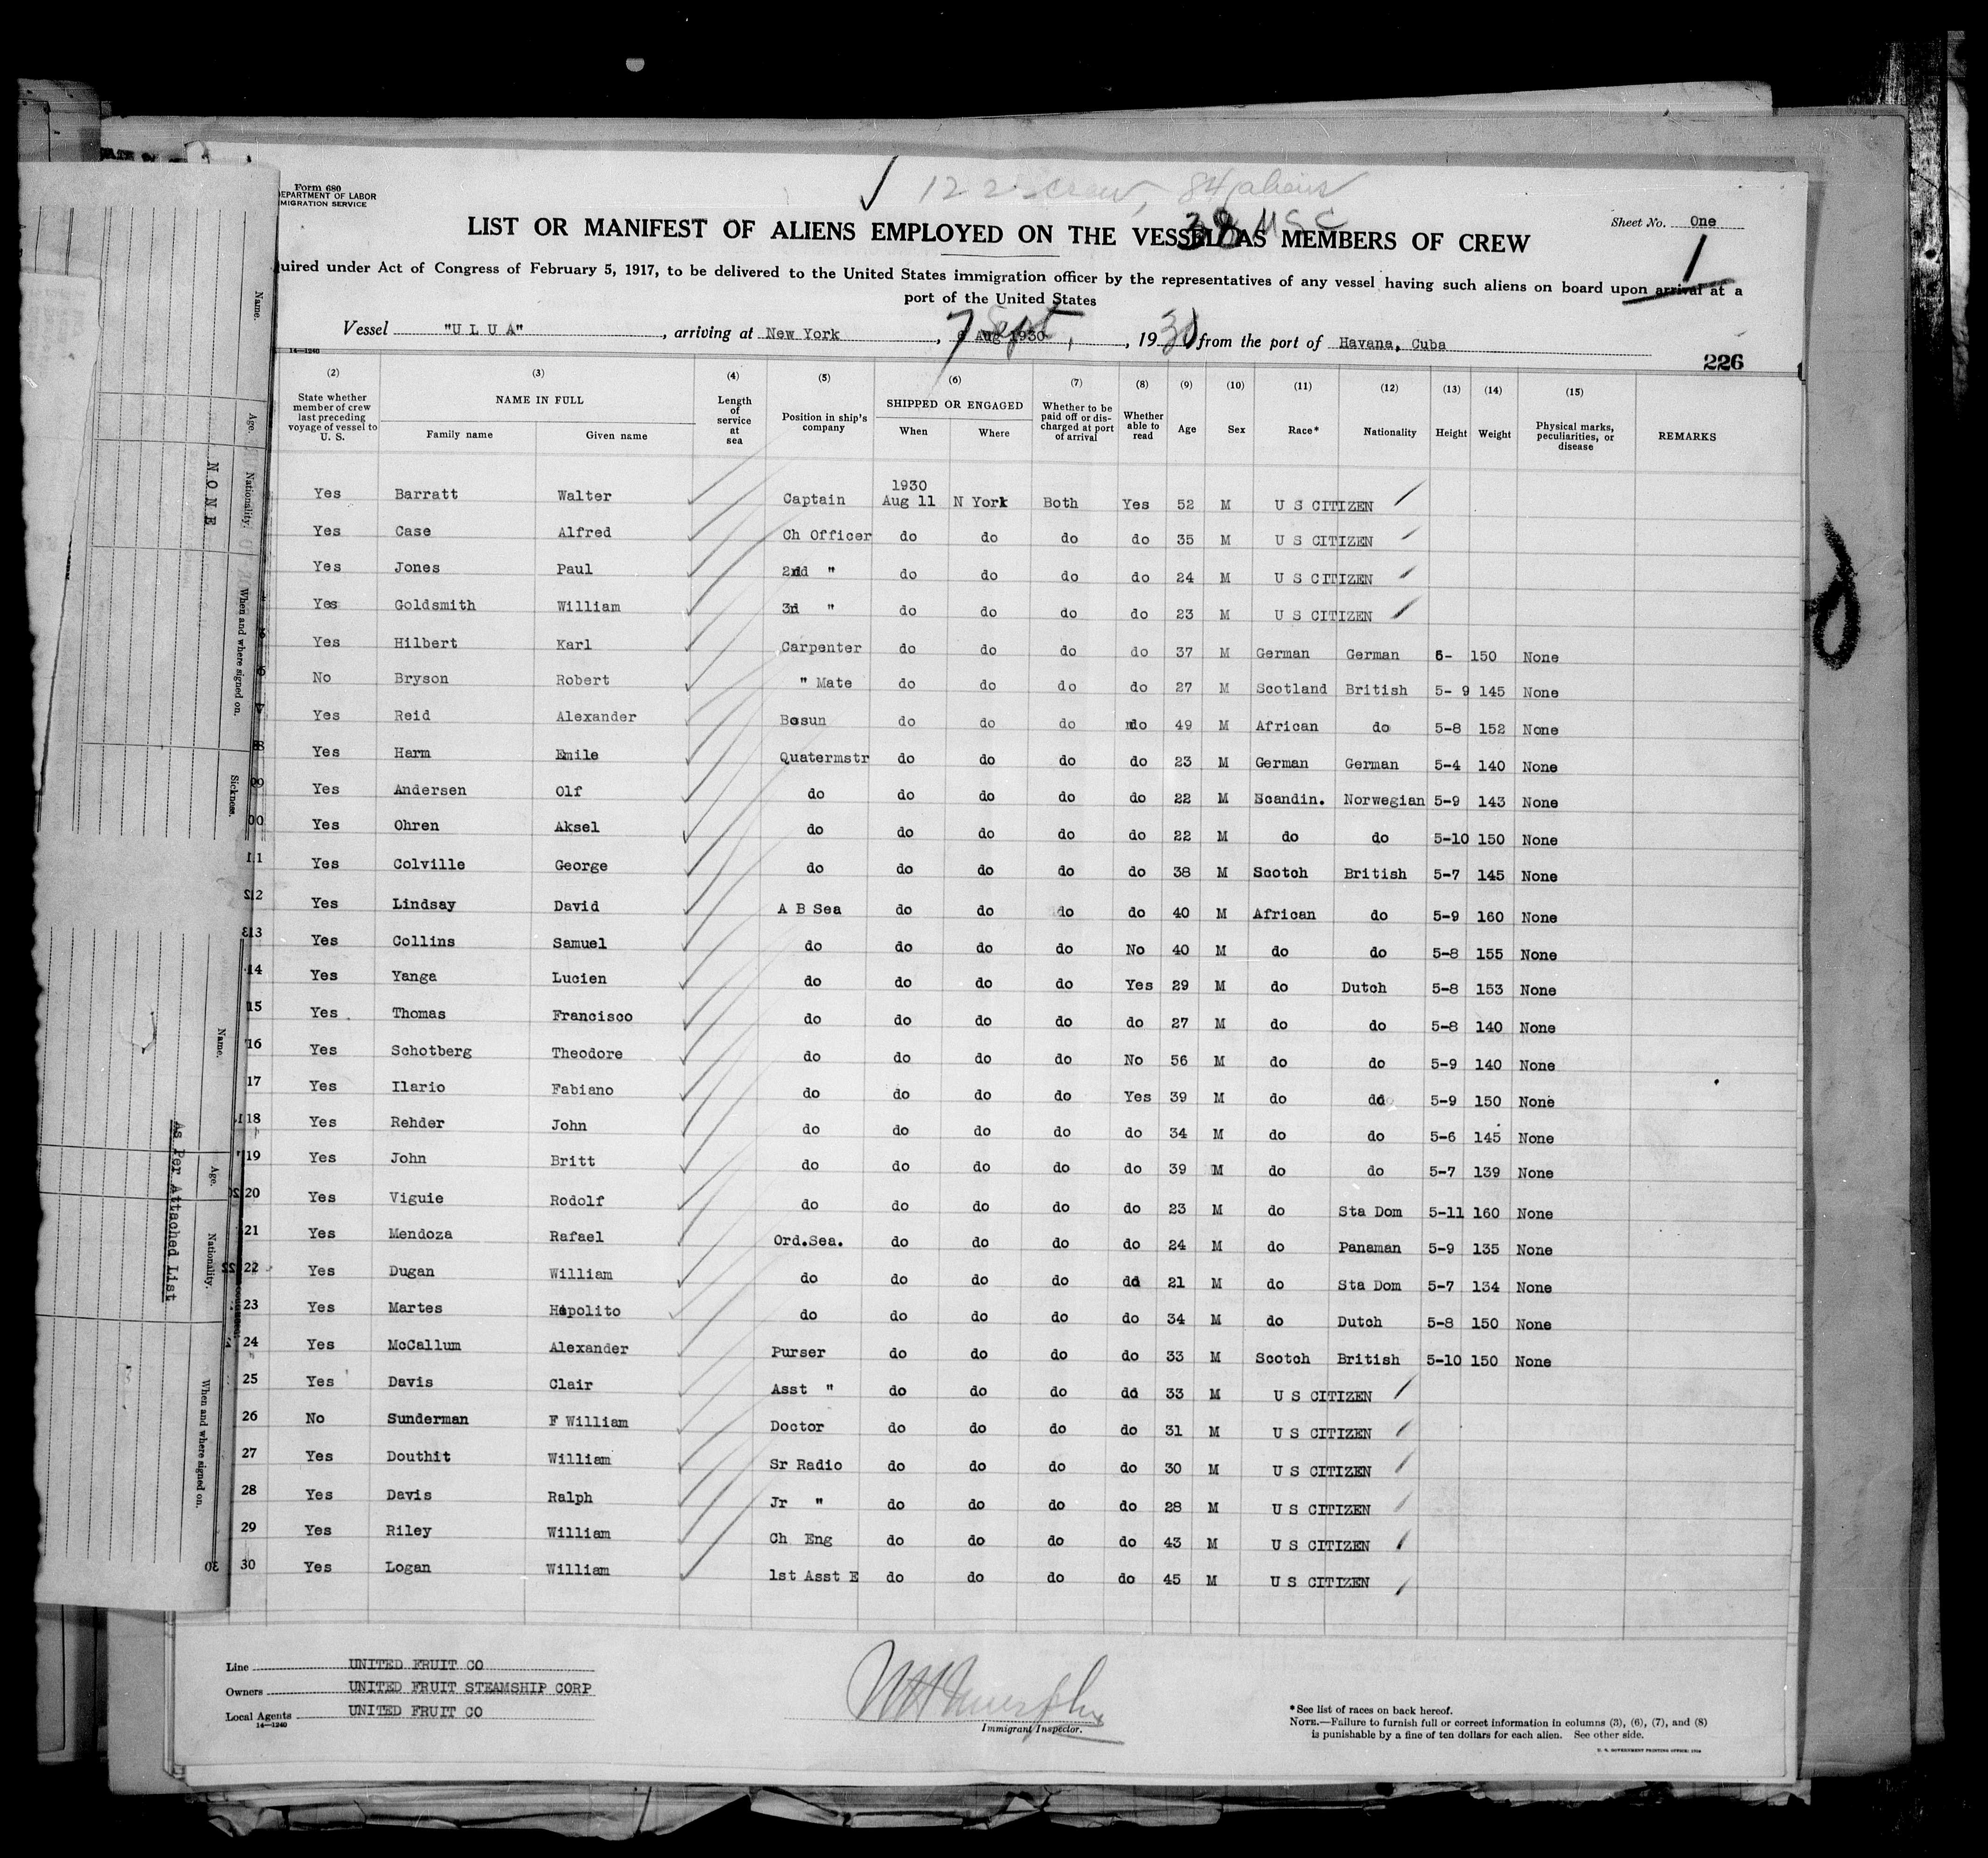 Form 680
DEPARTMENT OF LABOR
MIGRATION SERVICE
✓ 122 crew, 84 aliens
38 U S C
LIST OR MANIFEST OF ALIENS EMPLOYED ON THE VESSEL AS MEMBERS OF CREW
Sheet No. One
1
uired under Act of Congress of February 5, 1917, to be delivered to the United States immigration officer by the representatives of any vessel having such aliens on board upon arrival at a
port of the United States
Vessel "U L U A", arriving at New York, 7 Sept, Aug 1930, 1930 from the port of Havana, Cuba
14—1240
226
(2) (3) (4) (5) (6) (7) (8) (9) (10) (11) (12) (13) (14) (15)
State whether member of crew last preceding voyage of vessel to U. S. NAME IN FULL Family name Given name Length of service at sea Position in ship's company SHIPPED OR ENGAGED When Where Whether to be paid off or discharged at port of arrival Whether able to read Age Sex Race* Nationality Height Weight Physical marks, peculiarities, or disease REMARKS
1930
Yes Barratt Walter Captain Aug 11 N York Both Yes 52 M U S CITIZEN
Yes Case Alfred Ch Officer do do do do 35 M U S CITIZEN
Yes Jones Paul 2nd " do do do do 24 M U S CITIZEN
Yes Goldsmith William 3d " do do do do 23 M U S CITIZEN
Yes Hilbert Karl Carpenter do do do do 37 M German German 6- 150 None
No Bryson Robert " Mate do do do do 27 M Scotland British 5- 9 145 None
7 Yes Reid Alexander Bosun do do do do 49 M African do 5-8 152 None
8 Yes Harm Emile Quatermstr do do do do 23 M German German 5-4 140 None
9 Yes Andersen Olf do do do do do 22 M Scandin. Norwegian 5-9 143 None
Yes Ohren Aksel do do do do do 22 M do do 5-10 150 None
11 Yes Colville George do do do do do 38 M Scotch British 5-7 145 None
12 Yes Lindsay David A B Sea do do do do 40 M African do 5-9 160 None
13 Yes Collins Samuel do do do do No 40 M do do 5-8 155 None
14 Yes Yanga Lucien do do do do Yes 29 M do Dutch 5-8 153 None
15 Yes Thomas Francisco do do do do do 27 M do do 5-8 140 None
16 Yes Schotberg Theodore do do do do No 56 M do do 5-9 140 None
17 Yes Ilario Fabiano do do do do Yes 39 M do do 5-9 150 None
18 Yes Rehder John do do do do do 34 M do do 5-6 145 None
19 Yes John Britt do do do do do 39 M do do 5-7 139 None
20 Yes Viguie Rodolf do do do do do 23 M do Sta Dom 5-11 160 None
21 Yes Mendoza Rafael Ord.Sea. do do do do 24 M do Panaman 5-9 135 None
22 Yes Dugan William do do do do do 21 M do Sta Dom 5-7 134 None
23 Yes Martes Hipolito do do do do do 34 M do Dutch 5-8 150 None
24 Yes McCallum Alexander Purser do do do do 33 M Scotch British 5-10 150 None
25 Yes Davis Clair Asst " do do do do 33 M U S CITIZEN
26 No Sunderman F William Doctor do do do do 31 M U S CITIZEN
27 Yes Douthit William Sr Radio do do do do 30 M U S CITIZEN
28 Yes Davis Ralph Jr " do do do do 28 M U S CITIZEN
29 Yes Riley William Ch Eng do do do do 43 M U S CITIZEN
30 Yes Logan William 1st Asst E do do do do 45 M U S CITIZEN
Line UNITED FRUIT CO
Owners UNITED FRUIT STEAMSHIP CORP
Local Agents UNITED FRUIT CO
14—1240
Immigrant Inspector.
*See list of races on back hereof.
NOTE.—Failure to furnish full or correct information in columns (3), (6), (7), and (8)
is punishable by a fine of ten dollars for each alien. See other side.
U. S. GOVERNMENT PRINTING OFFICE
Name. Age. Nationality. When and where signed on. Sickness.
NONE
Name. Age. Nationality. When and where signed on.
As Per Attached List